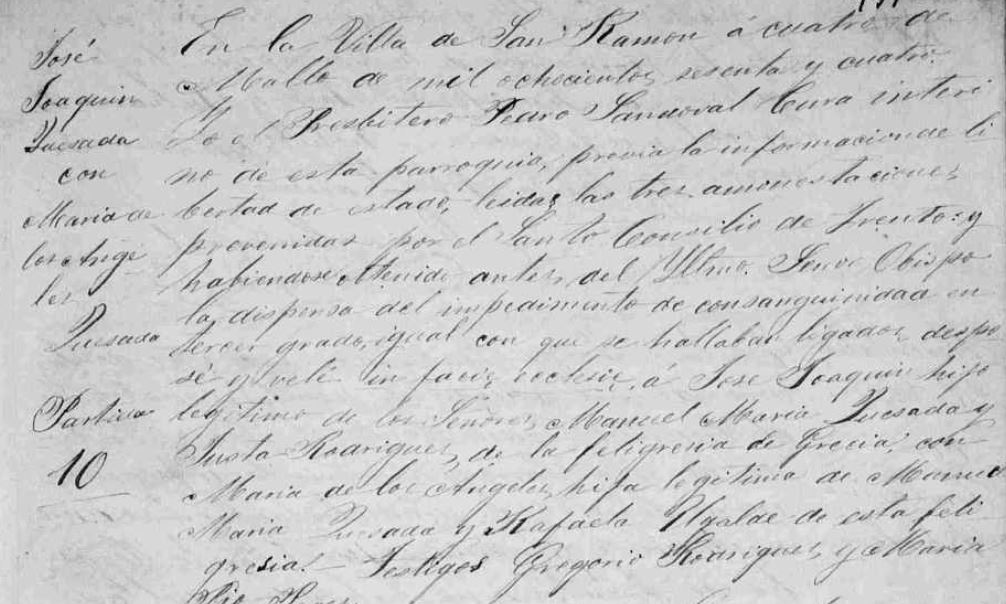 José
Joaquin
Quesada
con
Maria de
los Ange
les
Quesada
Partida
10
En la Villa de San Ramon á cuatro de
Mallo de mil ochocientos sesenta y cuatro.
Yo el Presbitero Pedro Sandoval Cura interi
no de esta parroquia, previa la informacion de li
bertad de estado, leidas las tres amonestaciones
prevenidas por el Santo Consilio de Trento: y
habiendose obtenido antes del Yltmo. Senor Obispo
la dispensa del impedimento de consanguinidad en
tercer grado igual con que se hallaban ligados, despo
sé y velé in facie eclesie, á Jose Joaquin hijo
legitimo de los Señores Manuel Maria Quesada y
Justa Rodriguez, de la feligresia de Grecia, con
Maria de los Angeles, hija legitima de Manuel
Maria Quesada y Rafaela Ugalde de esta feli
gresia. Testigos Gregorio Rodriguez y Maria